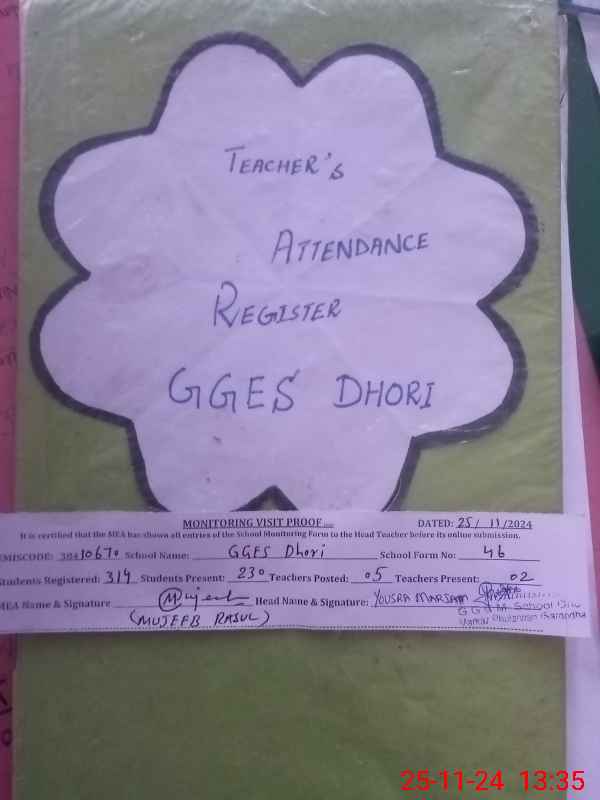 TEACHER'S
ATTENDANCE
REGISTER
GGES DHORI
MONITORING VISIT PROOF.... DATED: 25/11/2024
It is certified that the MEA has shown all entries of the School Monitoring Form to the Head Teacher before its online submission.
EMISCODE: 38410670 School Name: GGES Dhori School Form No: 46
Students Registered: 314 Students Present: 230 Teachers Posted: 05 Teachers Present: 02
MEA Name & Signature Mujeeb Head Name & Signature: YOUSRA MARIAM
(MUJEEB RASUL)
School
25-11-24 13:35